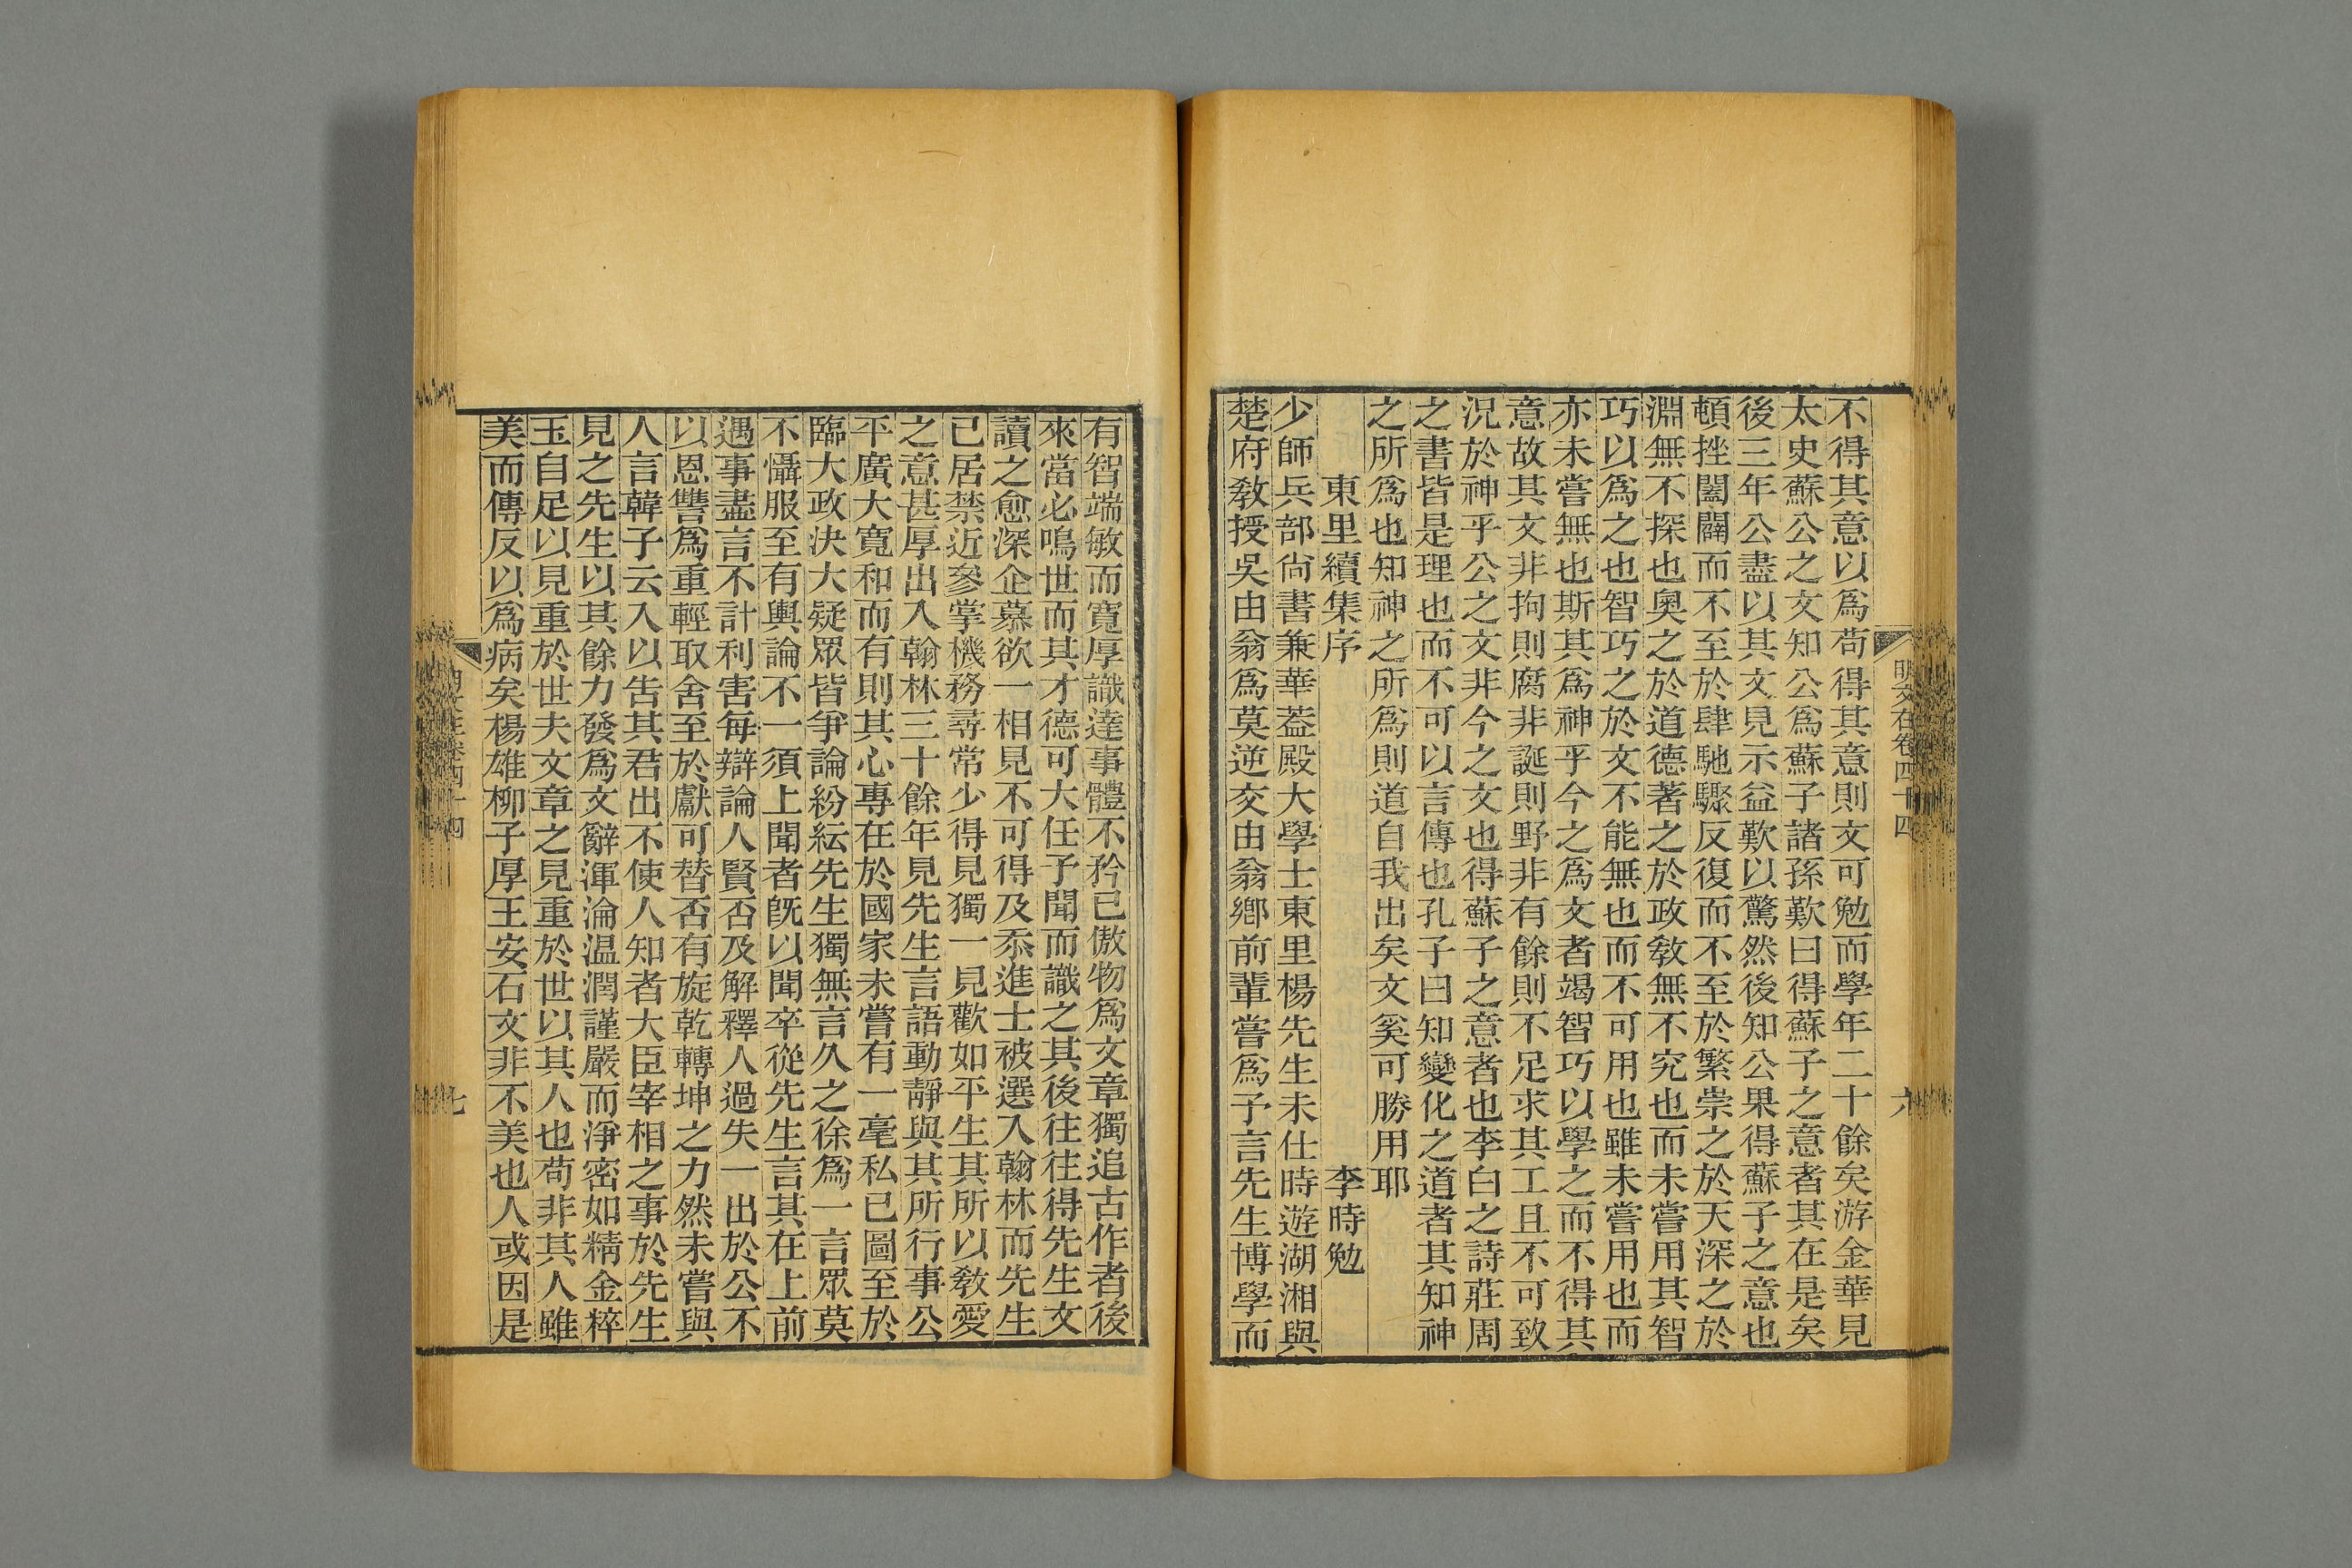 明文在卷四十四
六
不得其意以爲苟得其意則文可勉而學年二十餘矣游金華見
太史蘇公之文知公爲蘇子諸孫歎曰得蘇子之意者其在是矣
後三年公盡以其文見示益歎以驚然後知公果得蘇子之意也
頓挫闔闢而不至於肆馳驟反復而不至於繁崇之於天深之於
淵無不探也奧之於道德著之於政敎無不究也而未嘗用其智
巧以爲之也智巧之於文不能無也而不可用也雖未嘗用也而
亦未嘗無也斯其爲神乎今之爲文者竭智巧以學之而不得其
意故其文非拘則腐非誕則野非有餘則不足求其工且不可致
況於神乎公之文非今之文也得蘇子之意者也李白之詩莊周
之書皆是理也而不可以言傳也孔子曰知變化之道者其知神
之所爲也知神之所爲則道自我出矣文奚可勝用耶
東里續集序 李時勉
少師兵部尙書兼華葢殿大學士東里楊先生未仕時遊湖湘與
楚府敎授吳由翁爲莫逆交由翁鄕前輩嘗爲予言先生博學而
有智端敏而寬厚識達事體不矜已傲物爲文章獨追古作者後
來當必鳴世而其才德可大任予聞而識之其後往往得先生文
讀之愈深企慕欲一相見不可得及忝進士被選入翰林而先生
已居禁近參掌機務尋常少得見獨一見歡如平生其所以敎愛
之意甚厚出入翰林三十餘年見先生言語動靜與其所行事公
平廣大寬和而有則其心專在於國家未嘗有一毫私已圖至於
臨大政決大疑眾皆爭論紛紜先生獨無言久之徐爲一言眾莫
不懾服至有輿論不一須上聞者旣以聞卒從先生言其在上前
遇事盡言不計利害每辯論人賢否及解釋人過失一出於公不
以恩讐爲重輕取舍至於獻可替否有旋乾轉坤之力然未嘗與
人言韓子云入以告其君出不使人知者大臣宰相之事於先生
見之先生以其餘力發爲文辭渾淪温潤謹嚴而淨密如精金粹
玉自足以見重於世夫文章之見重於世以其人也苟非其人雖
美而傳反以爲病矣楊雄柳子厚王安石文非不美也人或因是
七